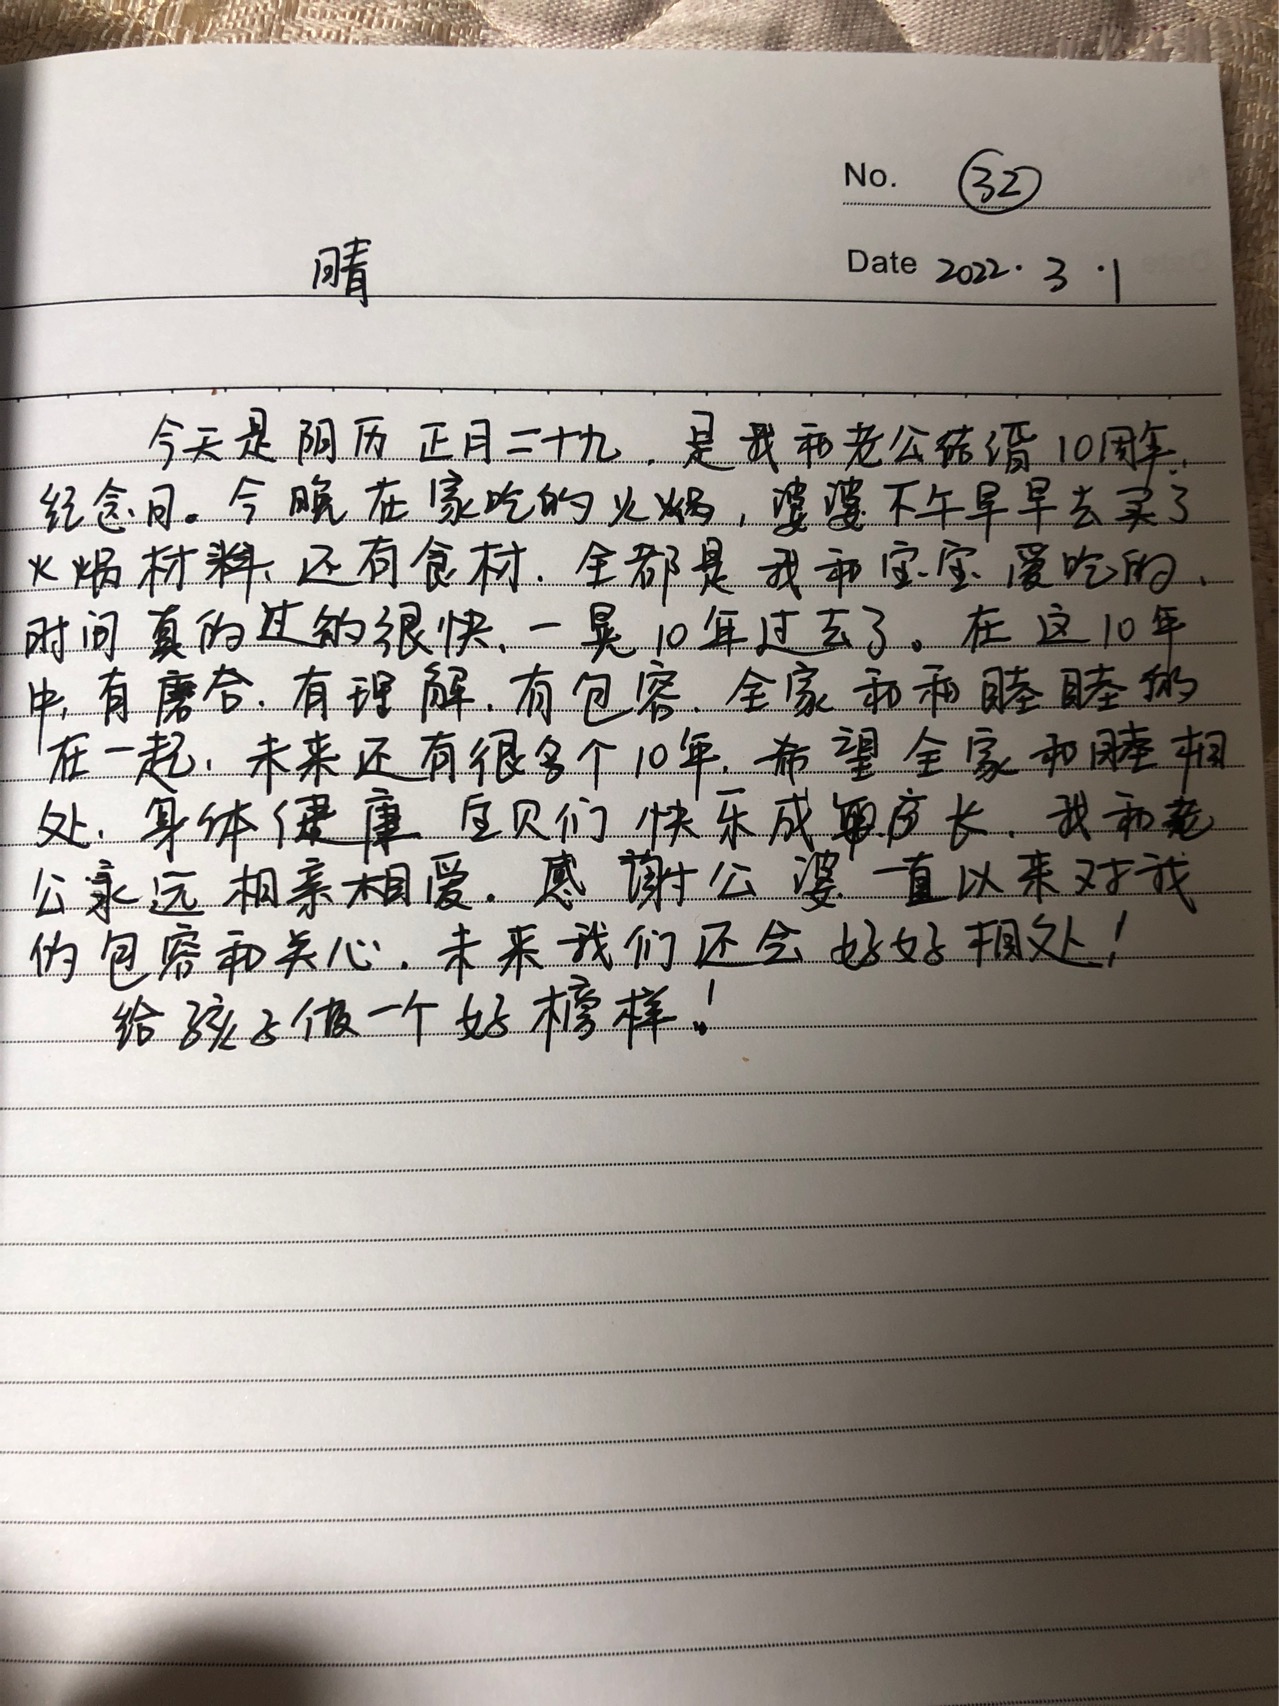 No. 32
晴
Date 2022.3.1
今天是阴历正月二十九,是我和老公结婚10周年,
纪念日。今晚在家吃的火锅,婆婆下午早早去买了
火锅材料,还有食材,全都是我和宝宝爱吃的,
时间真的过的很快,一晃10年过去了。在这10年
中,有磨合,有理解,有包容,全家和和睦睦的
在一起,未来还有很多个10年,希望全家和睦相
处,身体健康 宝贝们快乐成长,我和老
公永远相亲相爱,感谢公婆一直以来对我
的包容和关心,未来我们还会好好相处!
给孩子做一个好榜样!